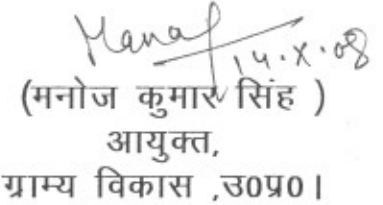 Manoj
14.X.08
(मनोज कुमार सिंह )
आयुक्त,
ग्राम्य विकास ,उ0प्र0।